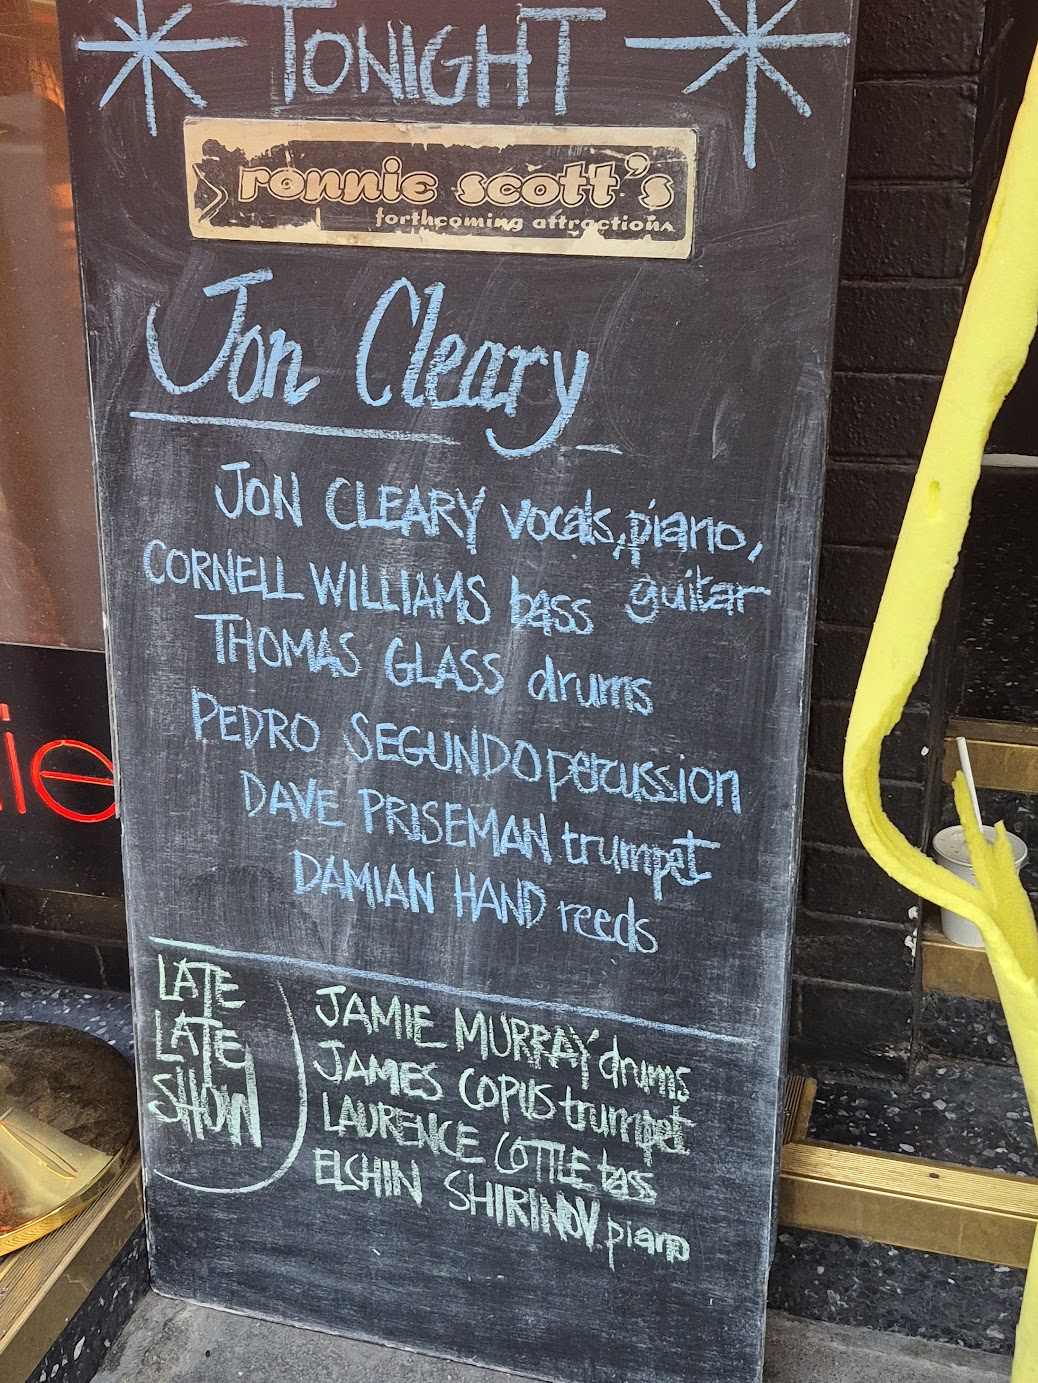 TONIGHT
ronnie scott's
forthcoming attractions
Jon Cleary
JON CLEARY vocals, piano,
guitar
CORNELL WILLIAMS bass
THOMAS GLASS drums
PEDRO SEGUNDO percussion
DAVE PRISEMAN trumpet
DAMIAN HAND reeds
LATE
LATE
SHOW
JAMIE MURRAY drums
JAMES COPUS trumpet
LAURENCE COTTLE bass
ELCHIN SHIRINOV piano
ie